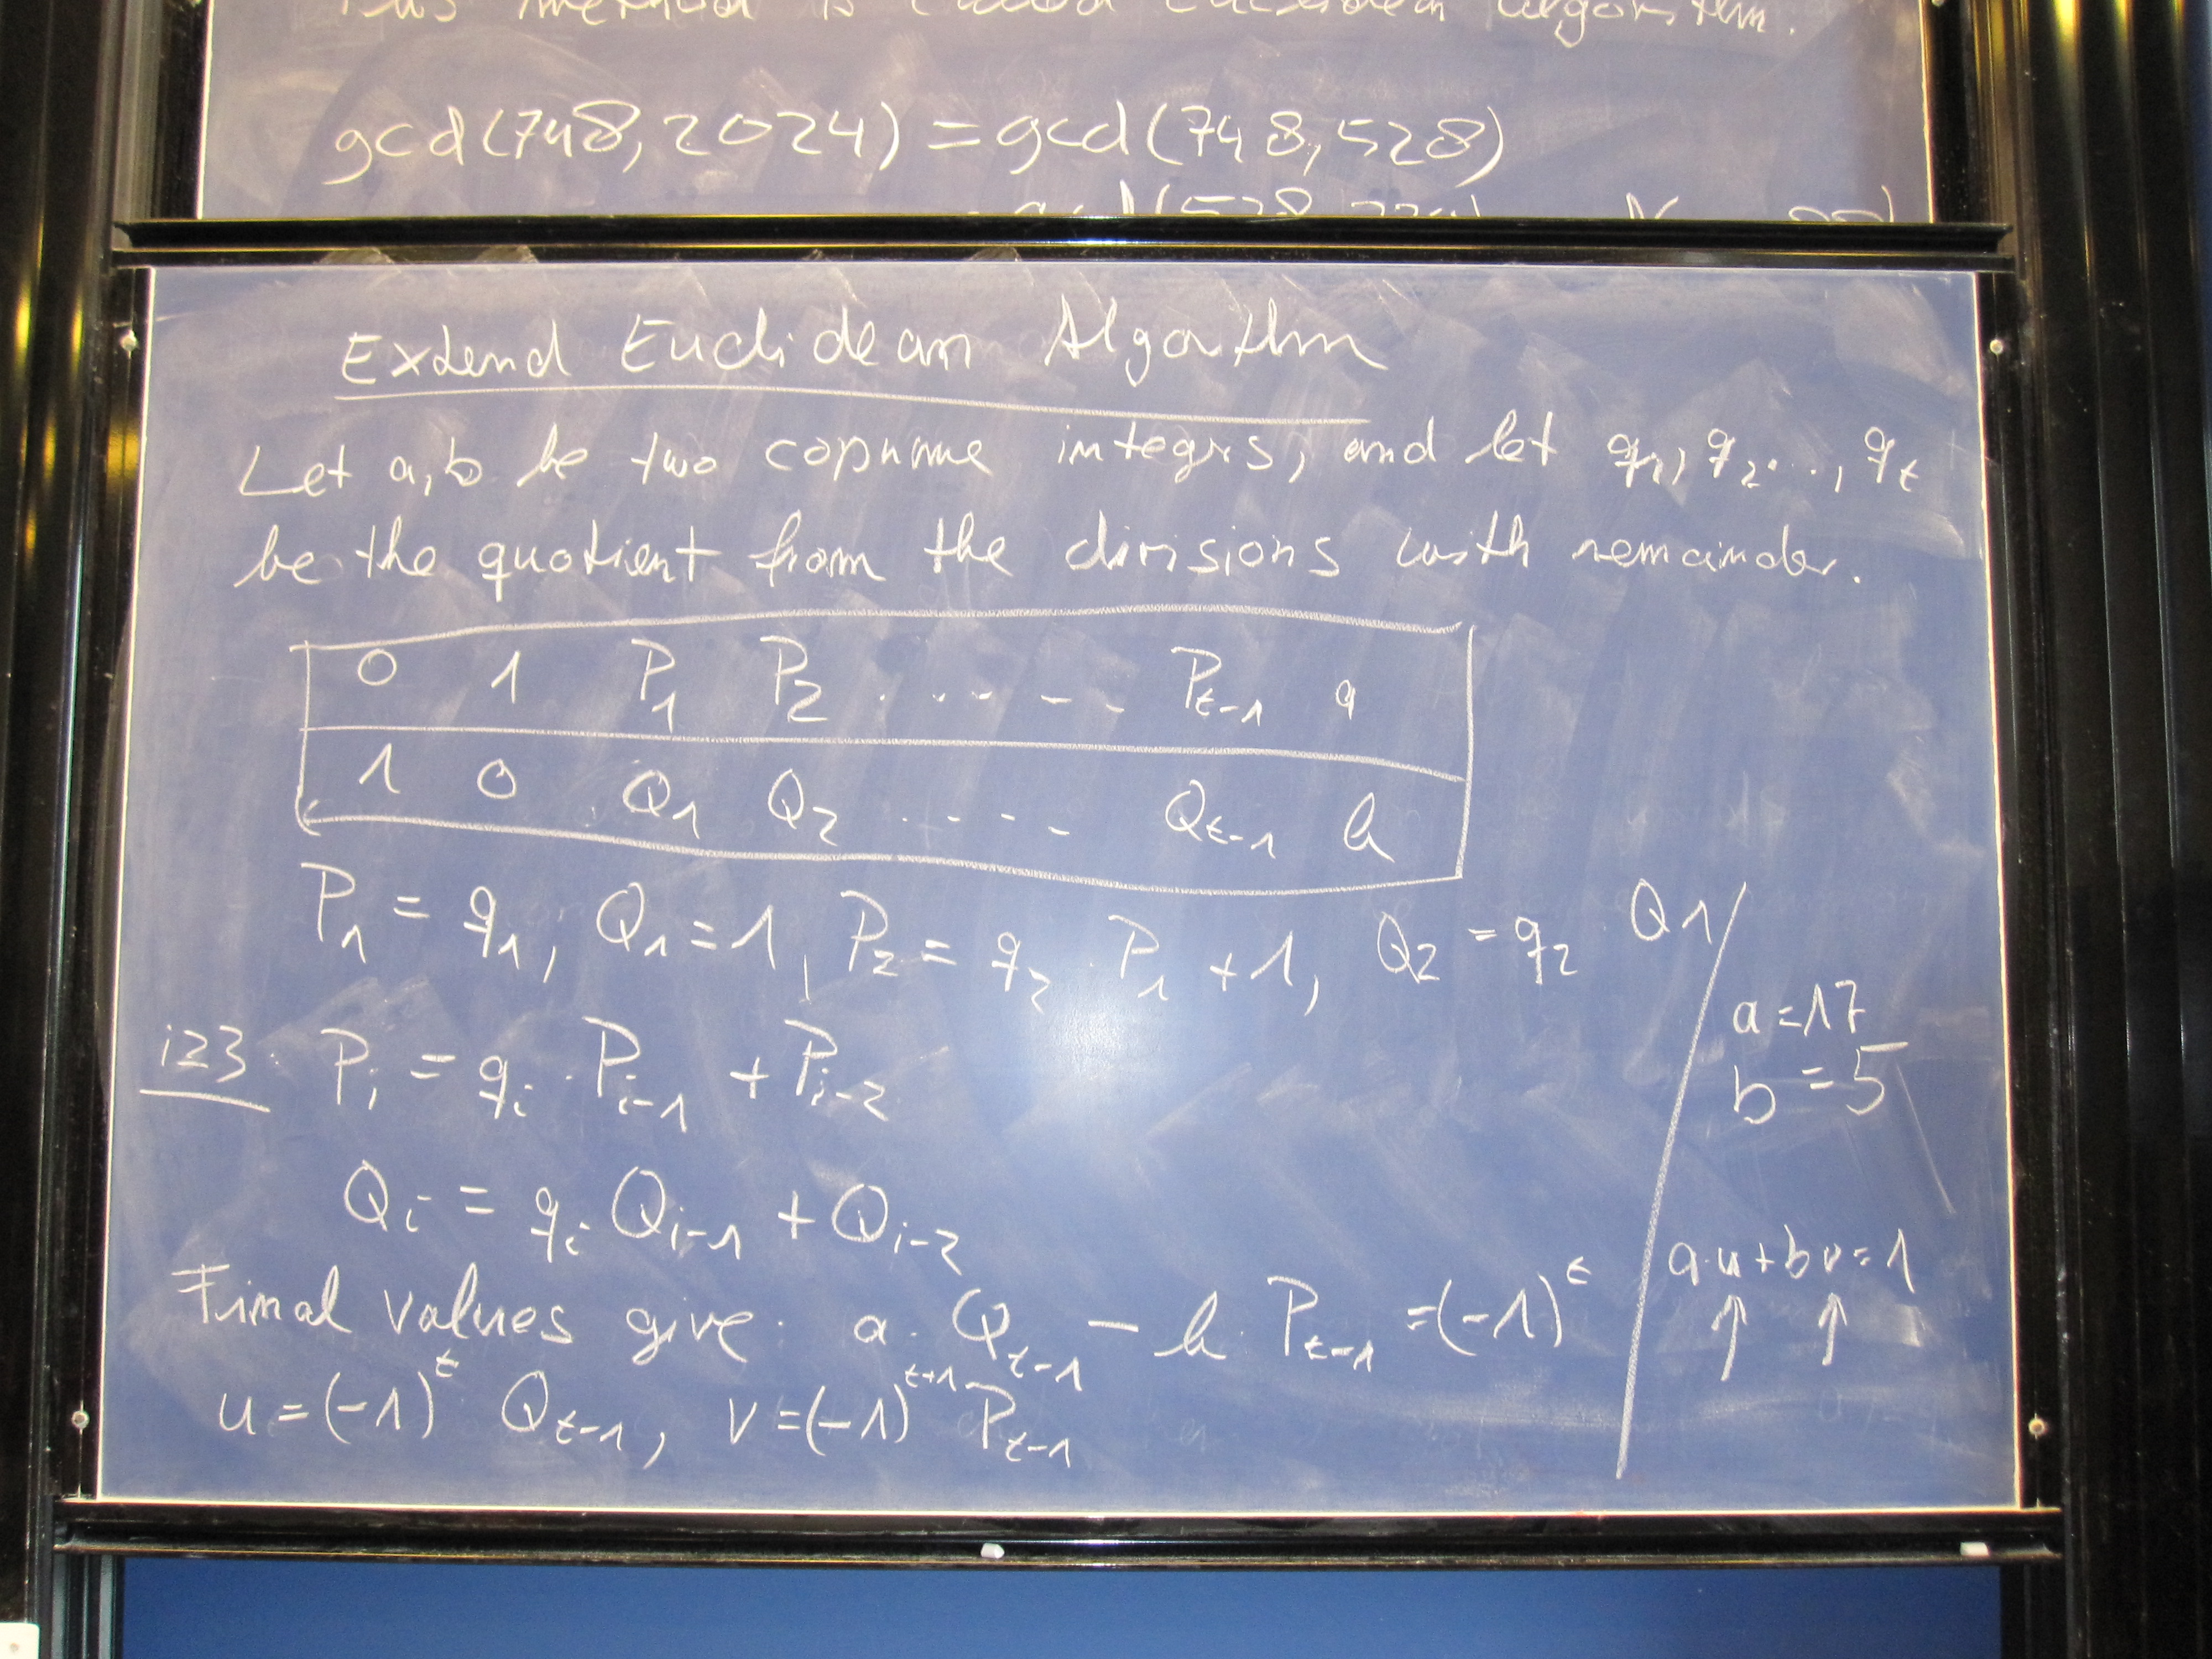 This method is called Euclidean algorithm.
gcd(748, 2024) = gcd(748, 528)
Extend Euclidean Algorithm
Let a, b be two coprime integrs, and let q₁, q₂..., qₜ
be the quotient from the divisions with remainder.
0 1 P₁ P₂ ...... Pₜ₋₁ a
1 0 Q₁ Q₂ ..... Qₜ₋₁ b
P₁ = q₁, Q₁ = 1, P₂ = q₂ · P₁ + 1, Q₂ = q₂ · Q1
i≥3 Pᵢ = qᵢ · Pᵢ₋₁ + Pᵢ₋₂
Qᵢ = qᵢ Qᵢ₋₁ + Qᵢ₋₂
Final values give: a · Qₜ₋₁ − b · Pₜ₋₁ = (−1)ᵗ
u = (−1)ᵗ Qₜ₋₁, v = (−1)ᵗ⁺¹ Pₜ₋₁
a = 17
b = 5
a·u + bv = 1
↑ ↑